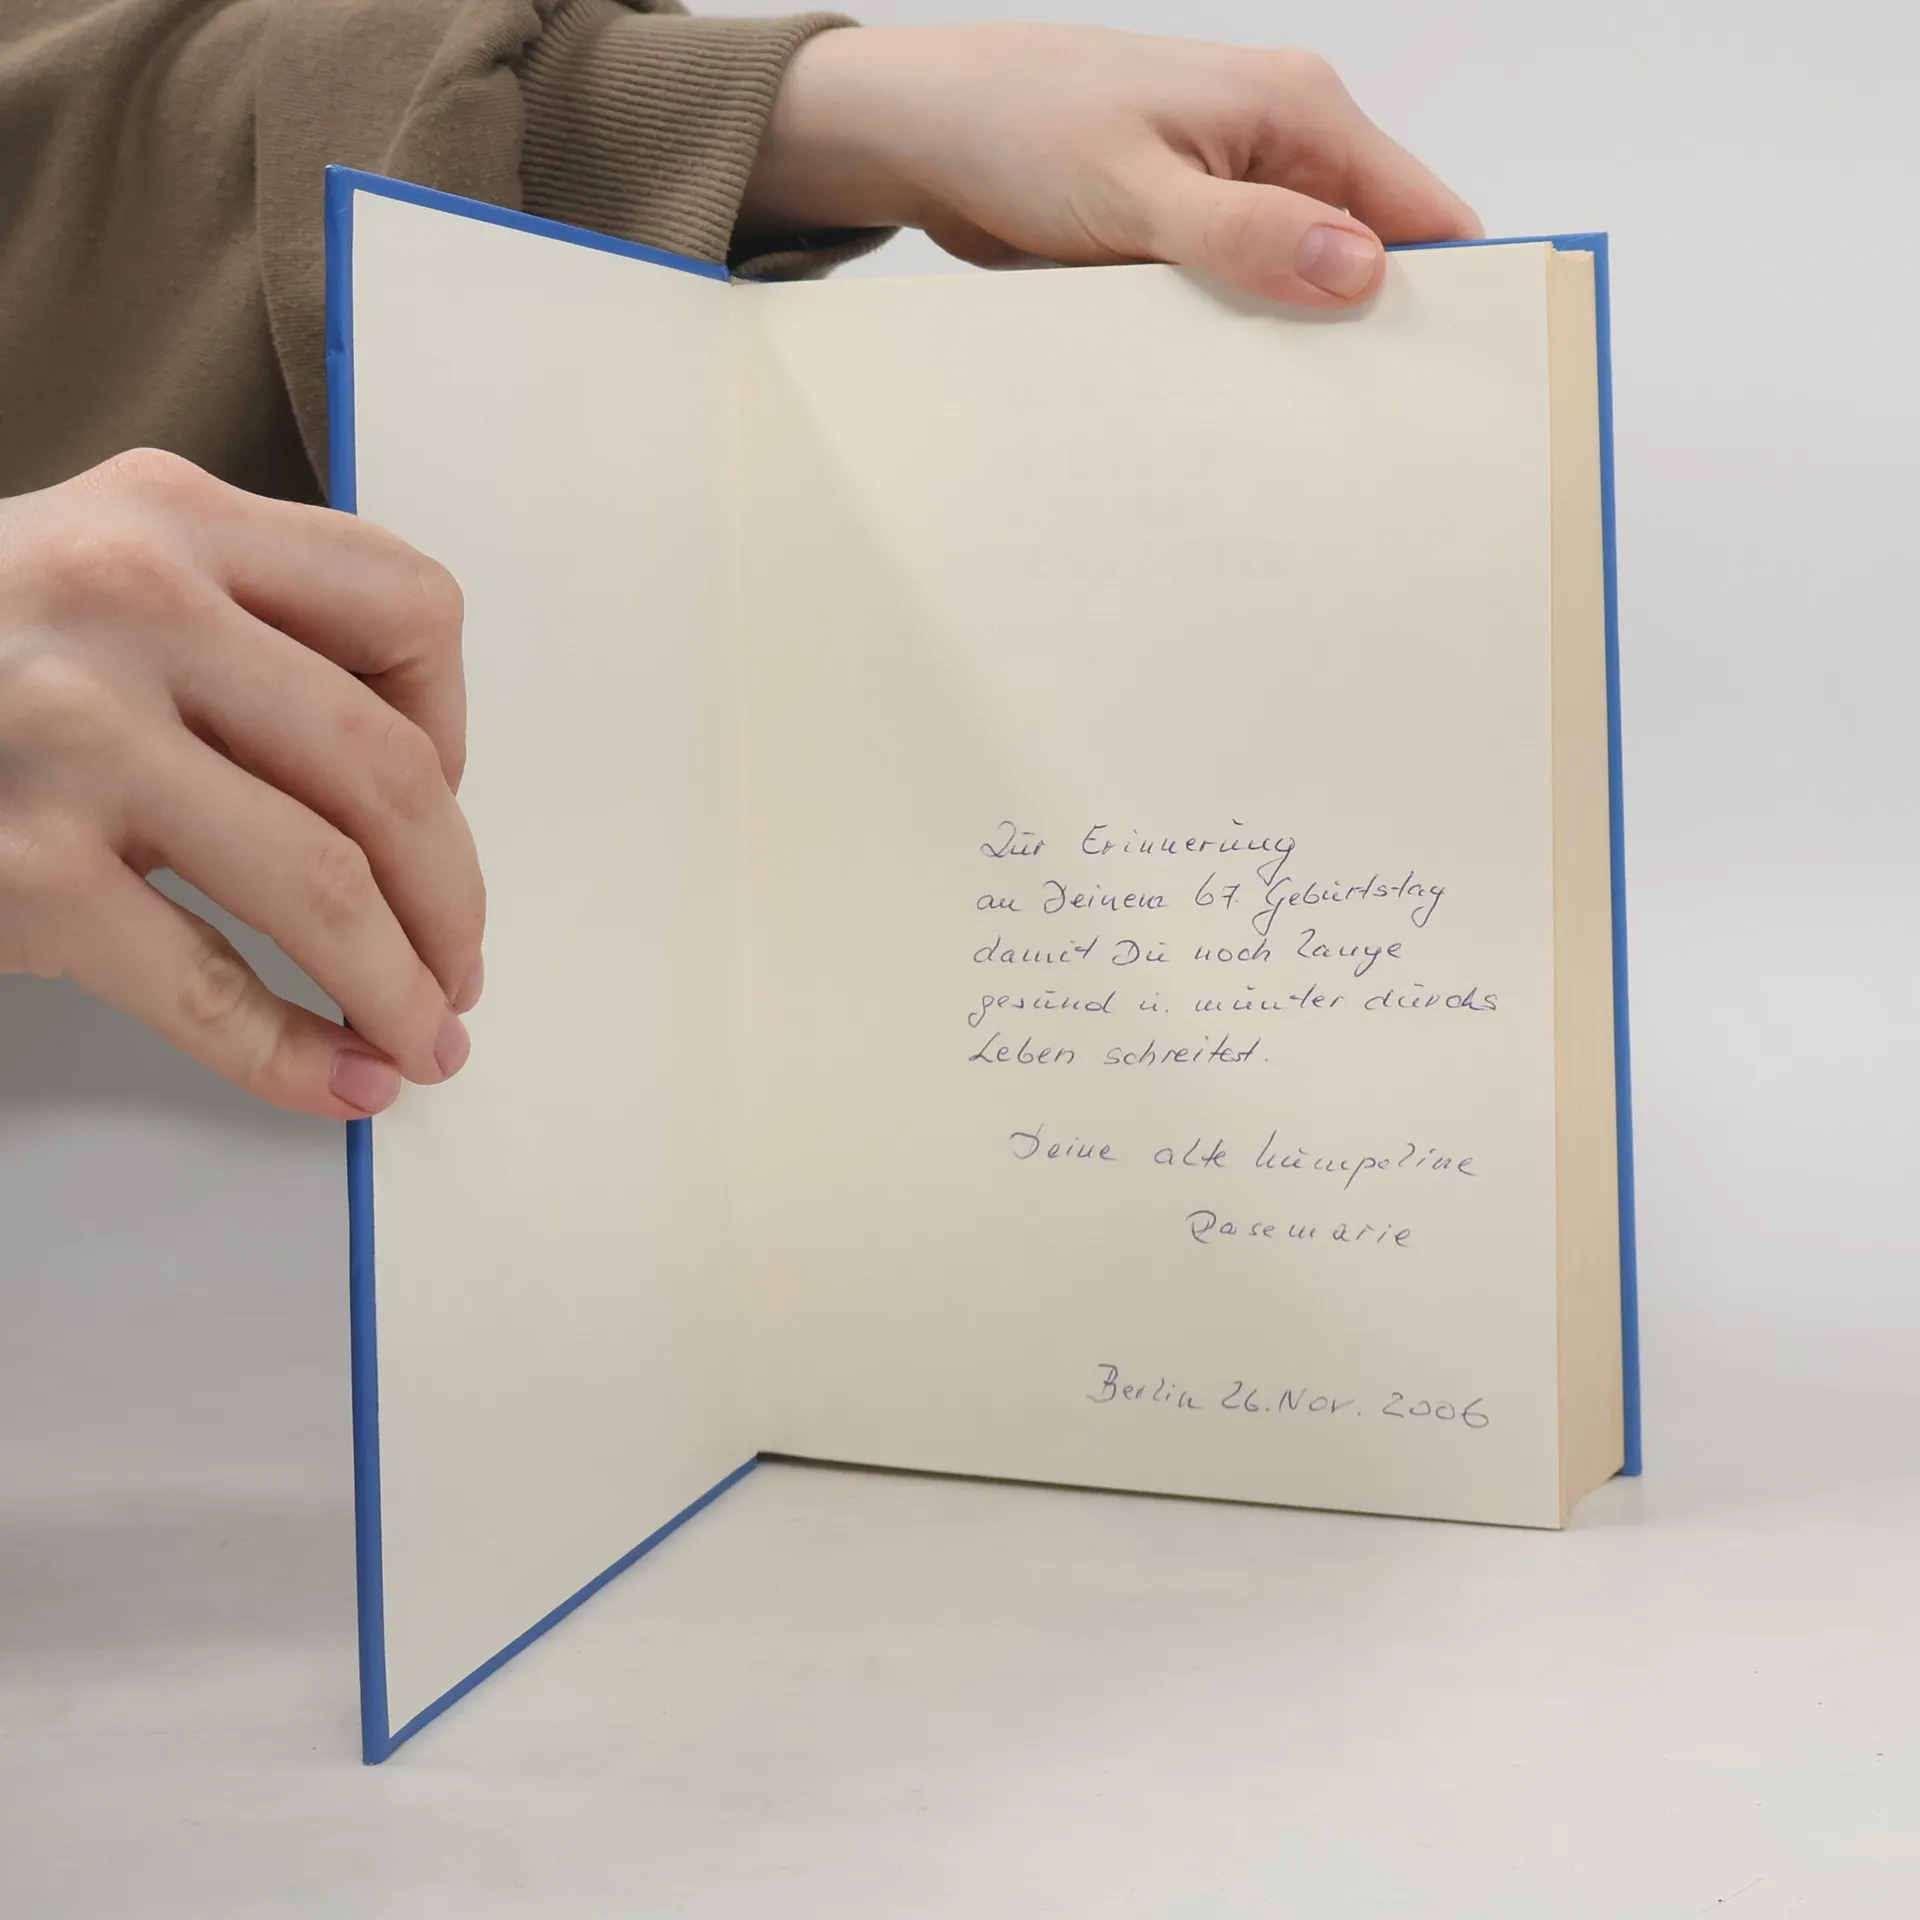 Zur Erinnerung
an Deinem 67. Geburtstag
damit Du noch lange
gesund u. munter durchs
Leben schreitest.
Deine alte Kumpeline
Rosemarie
Berlin 26. Nov. 2006